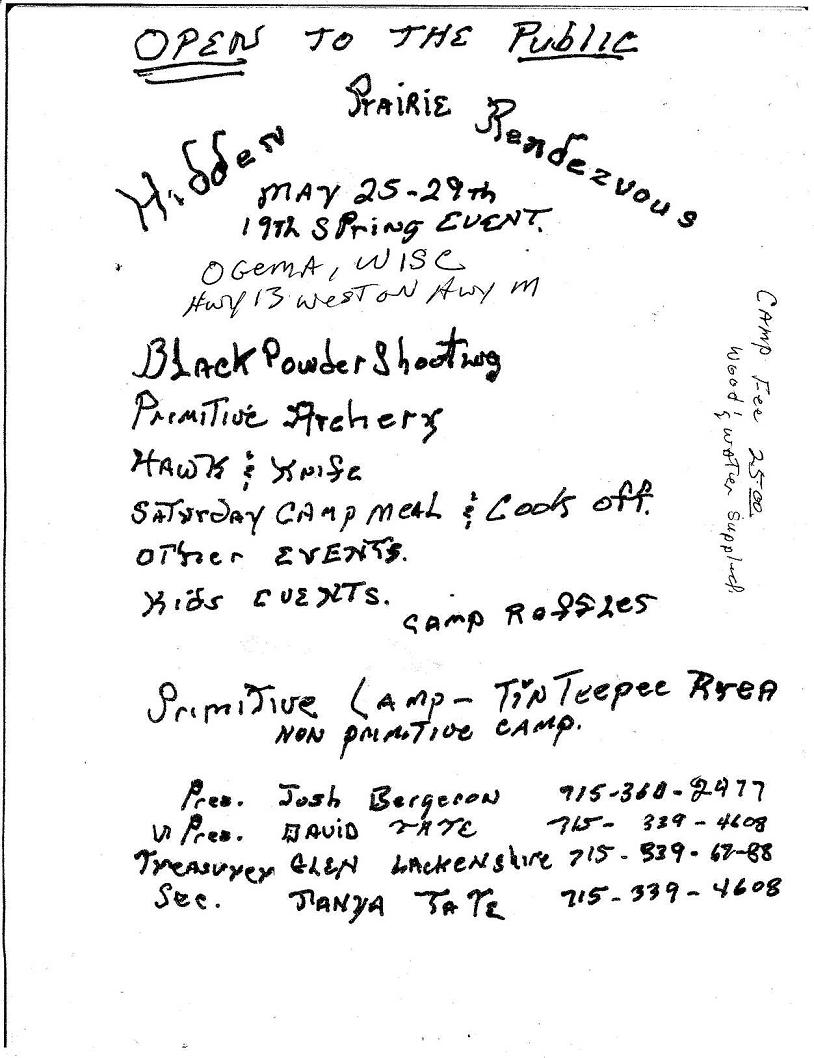 OPEN TO THE PUBLIC
Hidden PRAIRIE Rendezvous
MAY 25-29th
19Th SPring EVENT.
OGemA, WISC
Hwy 13 WEST ON Hwy M
BLACK Powder Shooting
PRIMITIVE Archery
HAWK & KNIFE
SATURDAY CAMP MEAL & COOK OFF.
OTher EVENTS.
Kids EVENTS.
CAMP RAFFLES
CAMP Fee 25.00
Wood & WATER Supplied.
Primitive CAMP - TiN Teepee AreA
NON PRIMITIVE CAMP.
Pres. Josh Bergeron 715-360-2477
Vi Pres. DAVID TATE 715-339-4608
TreASUrer GLEN LACKENShire 715-339-67-88
Sec. TANYA TATE 715-339-4608